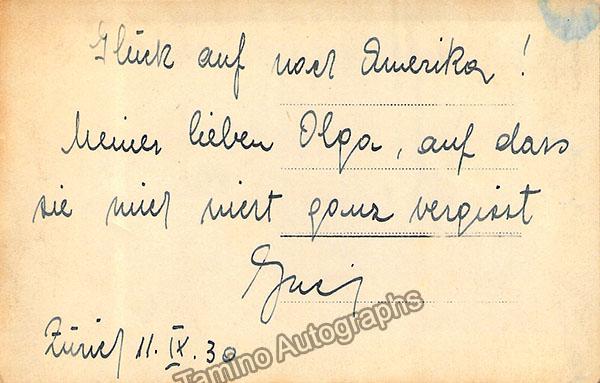 Glück auf nach Amerika!
Meiner lieben Olga, auf dass
sie mich nicht ganz vergisst
Zürich 11. IX. 30
Tamino Autographs